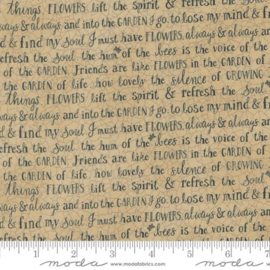 Things FLOWERS lift the Spirit & refresh the Soul
ways & always and into the GARDEN I go. to lose my mind & f
d & find my Soul I must have FLOWERS, always & always an
refresh the Soul the hum of the bees is the voice of the
of the GARDEN. friends are like FLOWERS in the GARDEN OF
the GARDEN of life. how lovely the silence of GROWING
Things FLOWERS lift the Spirit & refresh the Soul
ways & always and into the GARDEN I go. to lose my mind & f
d & find my Soul I must have FLOWERS, always & always an
refresh the Soul the hum of the bees is the voice of the
of the GARDEN. friends are like FLOWERS in the GARDEN OF
the GARDEN of life. how lovely the silence of GROWING
Things FLOWERS lift the Spirit & refresh the Soul
ways & always and into the GARDEN I go. to lose my mind &
d & find my Soul I must have FLOWERS, always & always an
refresh the Soul the hum of the bees is the voice of
1 2 3 4 5
moda www.modafabrics.com moda